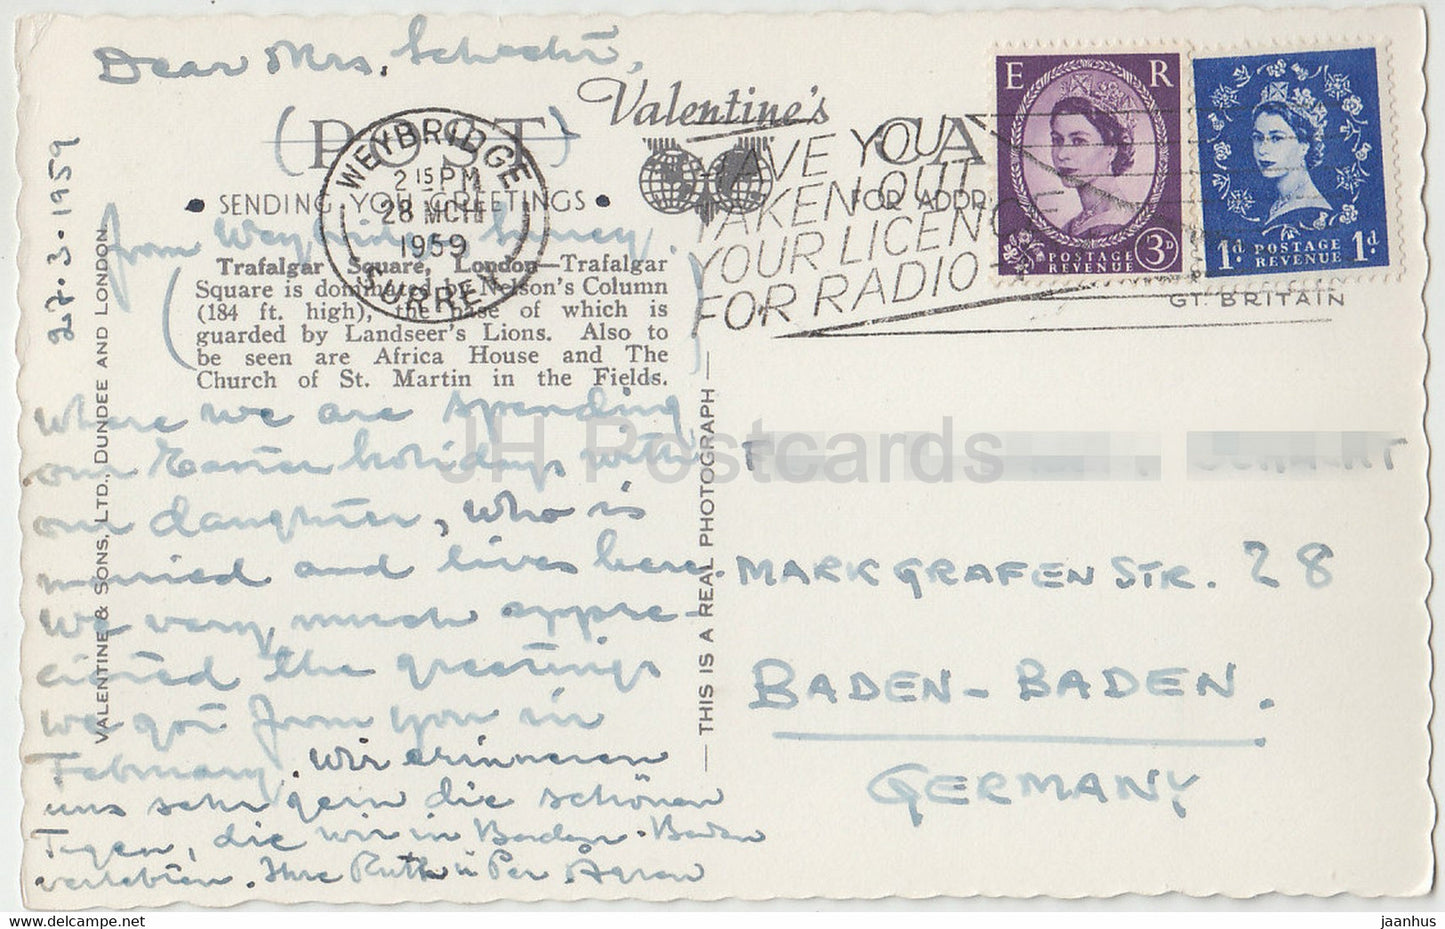 Dear Mrs.
Valentine's
(POST) CA
WEYBRIDGE
2 15 PM
28 MCH
1959
SURREY
HAVE YOU
TAKEN OUT
YOUR LICENCE
FOR RADIO
FOR ADDR
E R
3D
POSTAGE
REVENUE
1d POSTAGE 1d
REVENUE
GT. BRITAIN
27.3.1959
• SENDING YOU GREETINGS •
from Weybridge, Surrey.
Trafalgar Square, London—Trafalgar
Square is dominated by Nelson's Column
(184 ft. high), the base of which is
guarded by Landseer's Lions. Also to
be seen are Africa House and The
Church of St. Martin in the Fields.
where we are spending
our Easter holidays with
our daughter, who is
married and lives here.
We very much appre-
ciated the greetings
we got from you in
February. Wir erinnern
uns sehr gern die schönen
Tagen, die wir in Baden-Baden
verlebten. Ihre Ruth u Per Ågren
VALENTINE & SONS, LTD., DUNDEE AND LONDON.
— THIS IS A REAL PHOTOGRAPH —
JH Postcards
MARKGRAFENSTR. 28
BADEN-BADEN.
GERMANY
www.delcampe.net
jaanhus